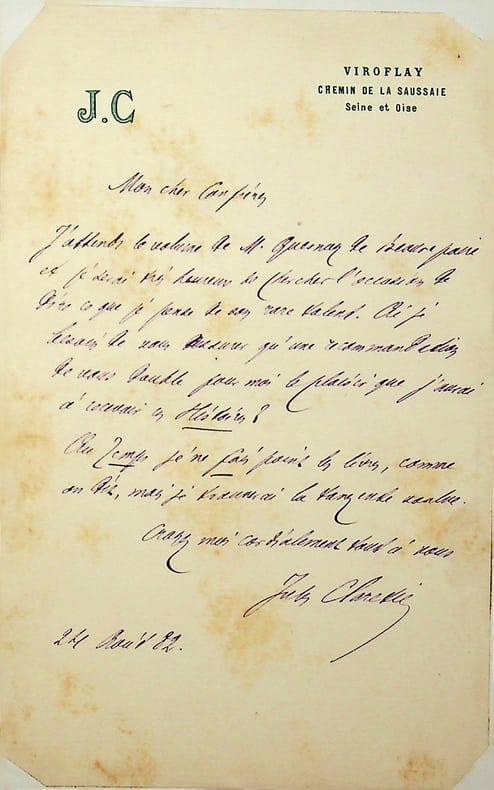 J.C
VIROFLAY
CHEMIN DE LA SAUSSAIE
Seine et Oise
Mon cher Confrère,
J'attends le volume de M. Quesnay de Beaurepaire
et je serai très heureux de chercher l'occasion de
dire ce que je pense de son rare talent. Ai-je
besoin de vous assurer qu'une recommandation
de vous double pour moi le plaisir que j'aurai
à recevoir ces Histoires ?
Au Temps je ne fais point les livres, comme
on dit, mais je trouverai la tangente voulue.
Croyez moi cordialement tout à vous
Jules Claretie
24 Août 82.